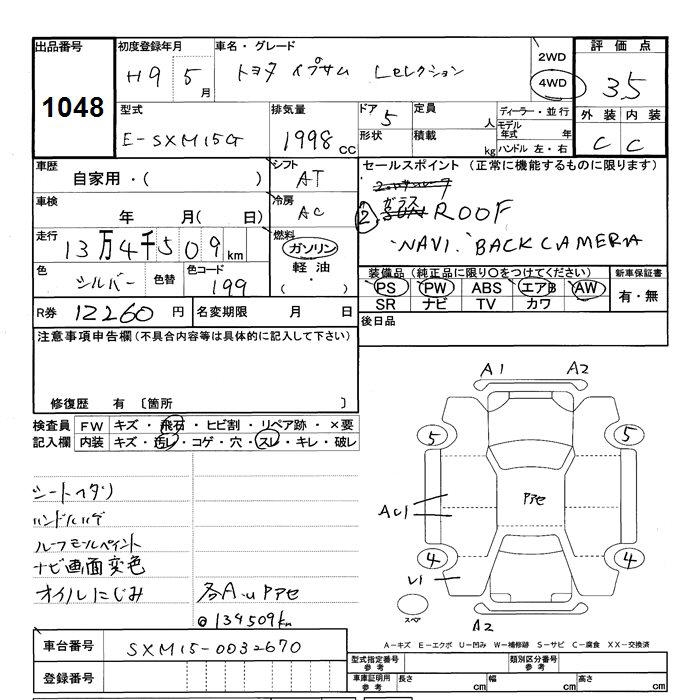 出品番号
1048
初度登録年月
H9 5 月
車名・グレード
トヨタ イプサム Lセレクション
2WD
4WD
評価点
3.5
型式
E-SXM15G
排気量
1998 cc
ドア 5
形状
定員 人
積載 kg
ディーラー・並行
モデル年式 年
ハンドル 左・右
外装 内装
C C
車歴
自家用・( )
シフト
AT
車検
年 月( 日)
冷房
AC
走行
13万4千509 km
燃料
ガソリン
軽油
( ・ )
色
シルバー
色替
色コード
199
R券 12260 円
名変期限 月 日
セールスポイント (正常に機能するものに限ります)
② ガラス ROOF
NAVI. BACK CAMERA
装備品 (純正品に限り○をつけてください)
PS PW ABS エアB AW
SR ナビ TV カワ
新車保証書
有・無
後日品
注意事項申告欄(不具合内容等は具体的に記入して下さい)
修復歴 有 〔箇所 〕
検査員記入欄
FW キズ・飛石・ヒビ割・リペア跡・×要
内装 キズ・汚レ・コゲ・穴・スレ・キレ・破レ
シートヘタリ
ハンドルハゲ
ルーフモールペイント
ナビ画面変色
オイルにじみ
各A・U P7セ
@134509km
A1 A2
5 5
P7セ
AU1
4 4
U1
スペア
A2
A-キズ E-エクボ U-凹み W-補修跡 S-サビ C-腐食 XX-交換済
車台番号 SXM15-0032670
登録番号
型式指定番号 参考
類別区分番号 参考
車庫証明用 参考
長さ cm 幅 cm 高さ cm